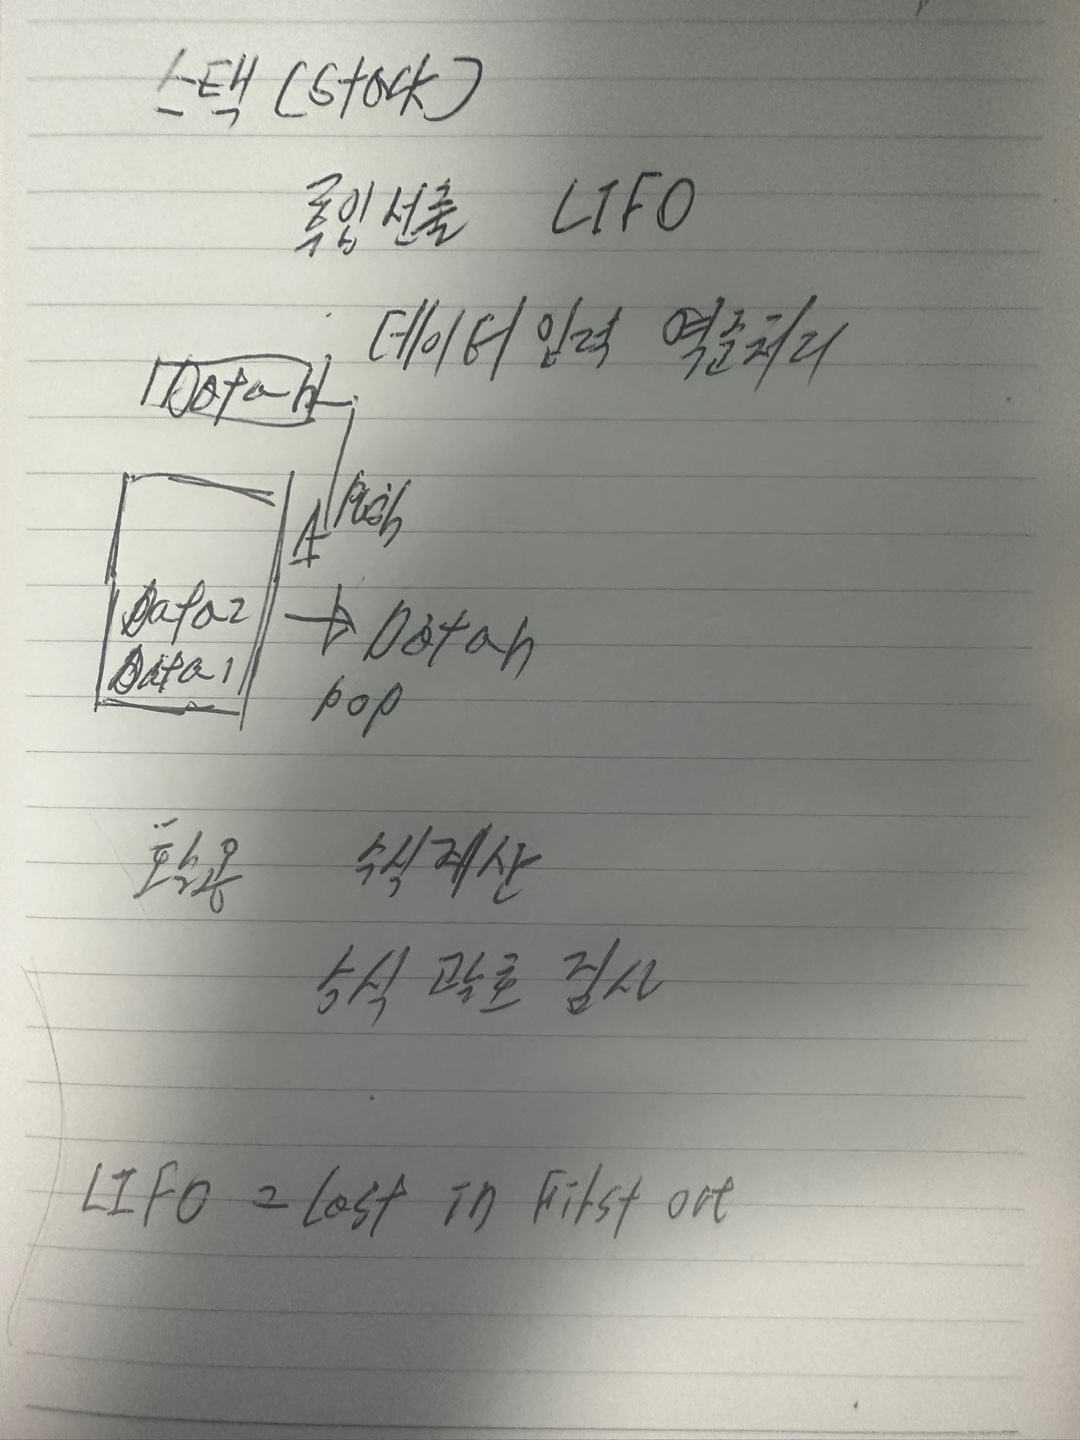 스택 (Stack)
후입선출 LIFO
데이터 입력 역순처리
Data n
push
Data2
Data1
Data n
pop
활용 수식계산
수식 괄호 검사
LIFO = Last in First out